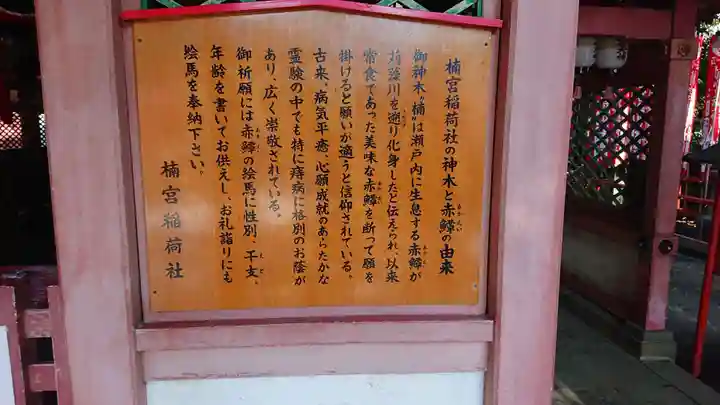 楠宮稲荷社の神木と赤鱏の由来
御神木"楠"は瀬戸内に生息する赤鱏が
苅藻川を遡り化身したと伝えられ、以来
常食であった美味な赤鱏を断って願を
掛けると願いが適うと信仰されている。
古来、病気平癒、心願成就のあらたかな
霊験の中でも特に痔病に格別のお蔭が
あり、広く崇敬されている。
御祈願には赤鱏の絵馬に性別、干支、
年齢を書いてお供えし、お礼詣りにも
絵馬を奉納下さい。
楠宮稲荷社